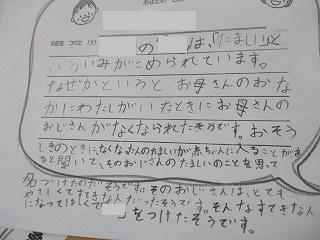 あなたの
名前を つけた わけ
の は、「たましい」と
いういみがこめられています。
なぜかというと、お母さんのおな
かにわたしがいたときにお母さんの
おじさんがなくなられたそうです。おそう
しきのときに、なくなった人のたましいが赤ちゃんに入ることがあ
ると聞いて、そのおじさんのたましいのことを思って
名づけたのだそうです。そのおじさんは、とても
やさしくてすてきな人だったそうです。そんなすてきな人
になってほしくて 」をつけたそうです。